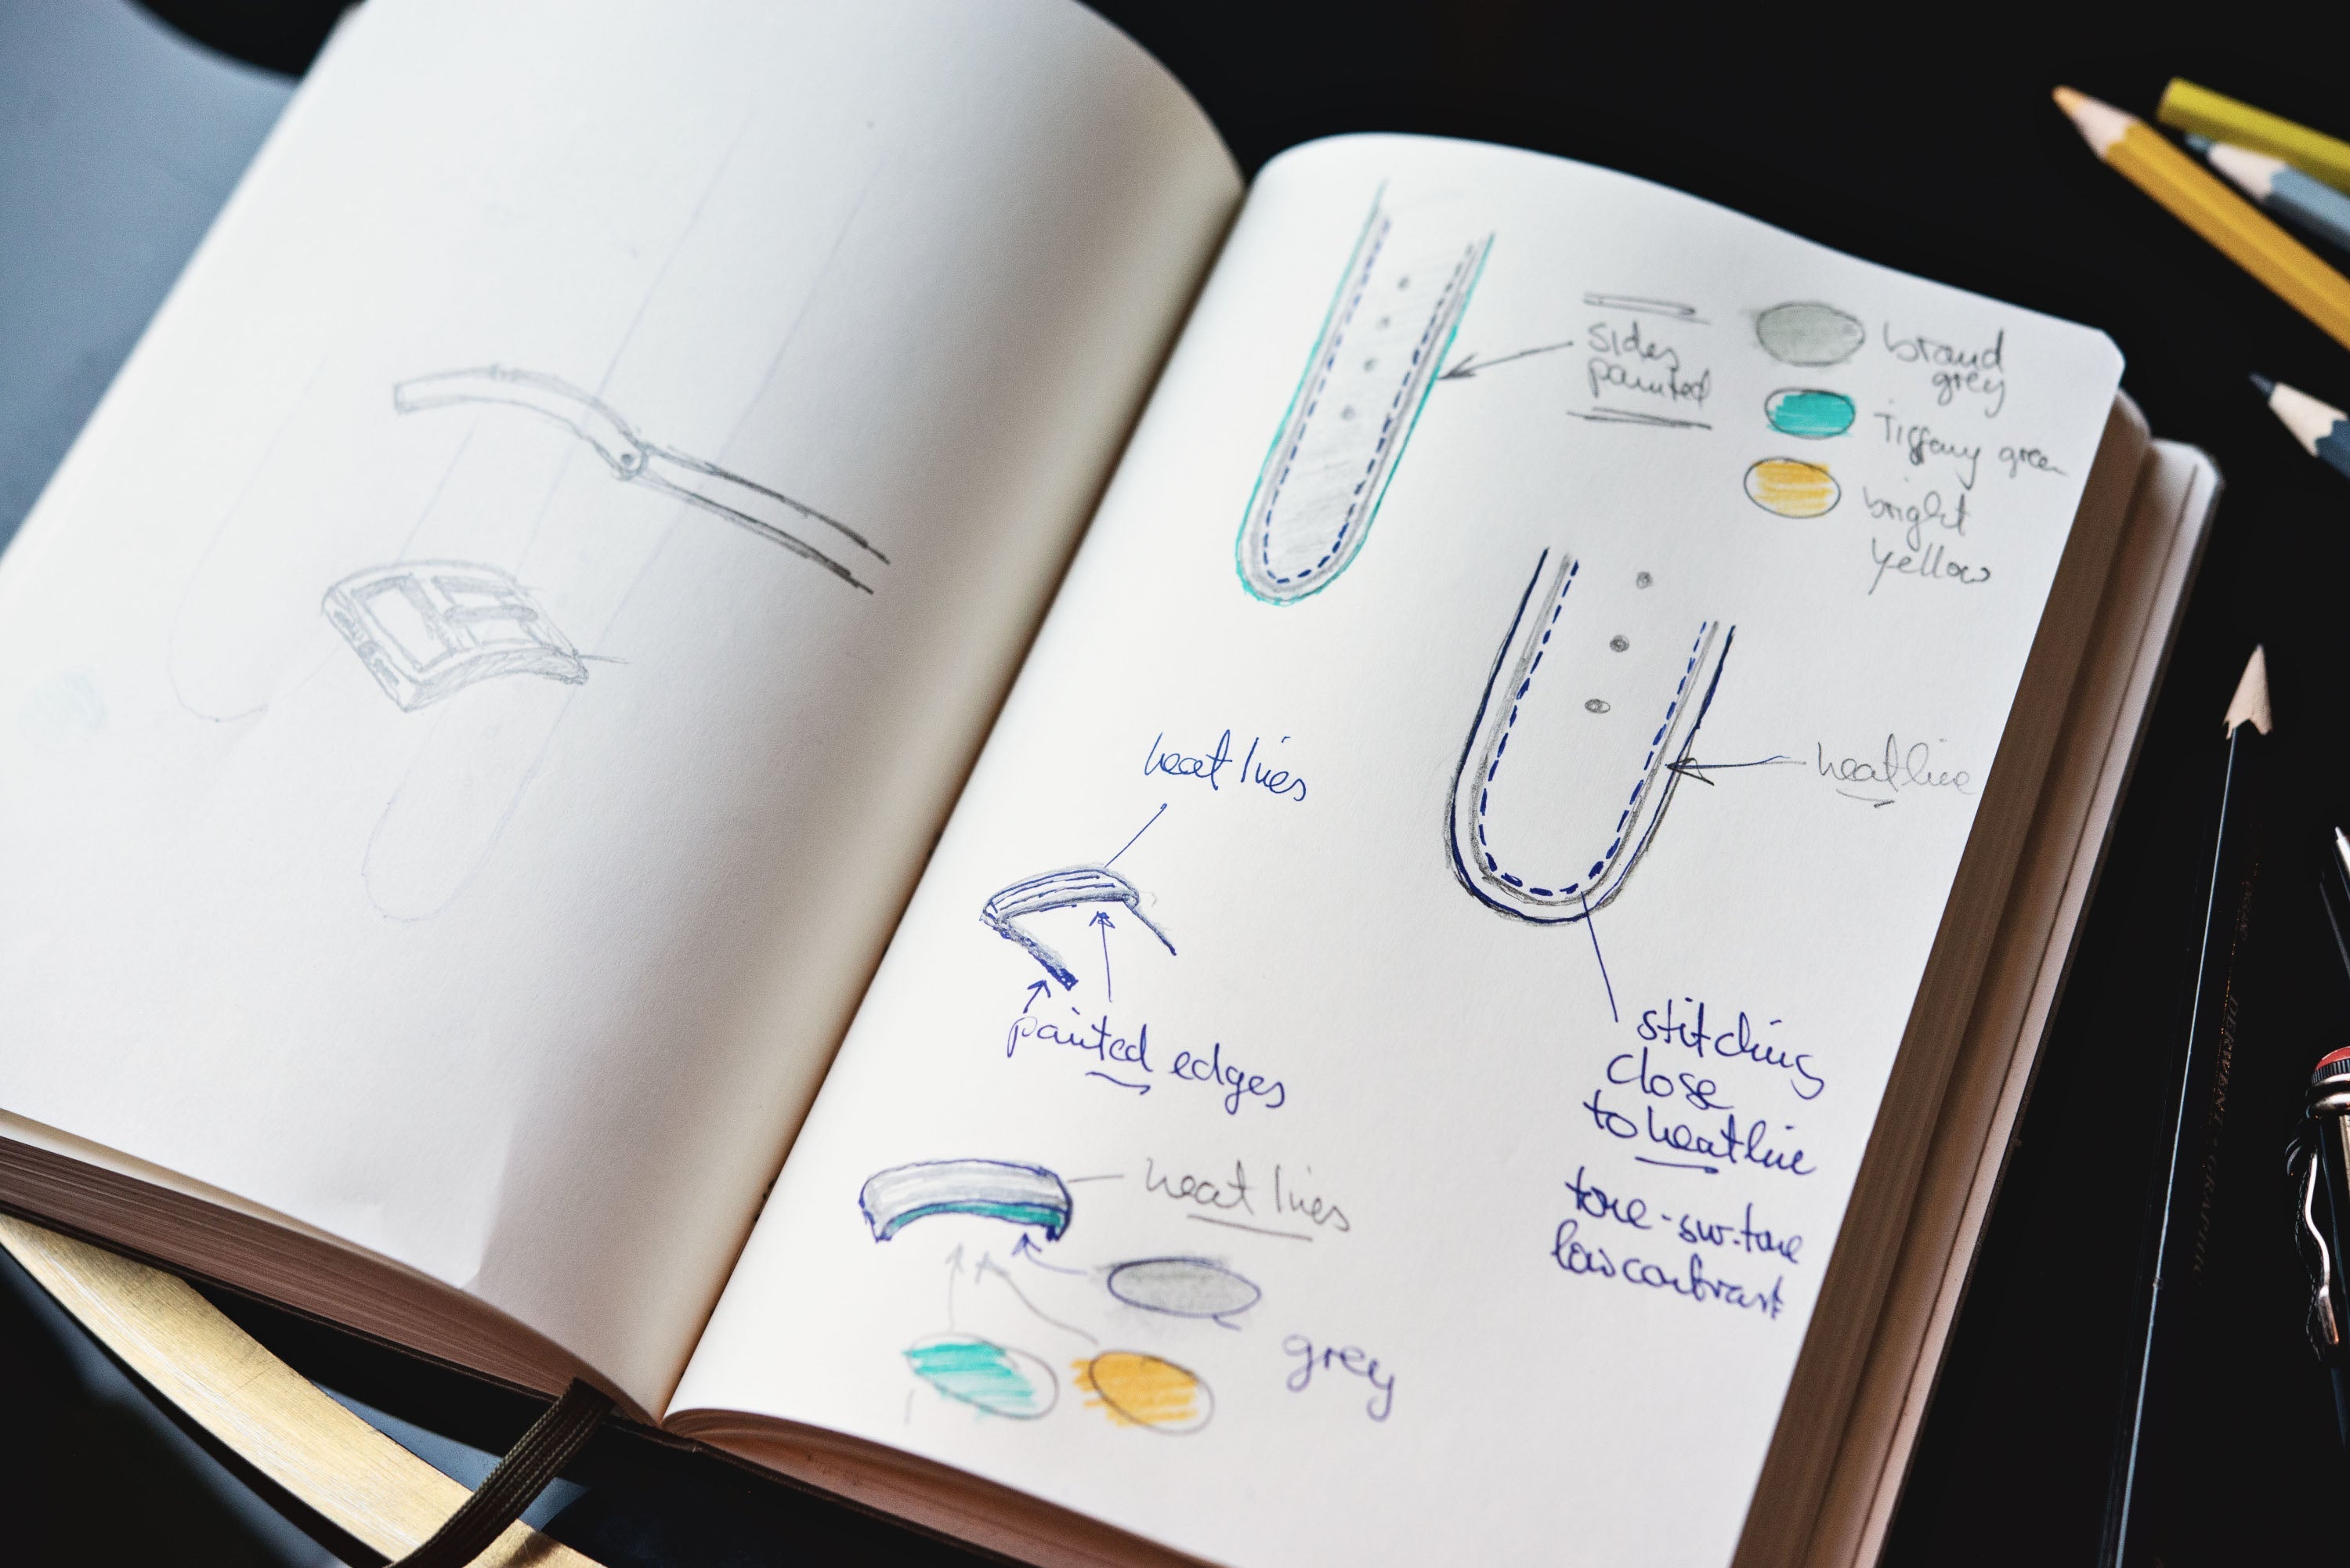 sides
painted
brand
grey
Tiffany green
bright
yellow
heat line
heat lines
stitching
close
to heat line
tone-sur-tone
low contrast
painted edges
heat lines
grey